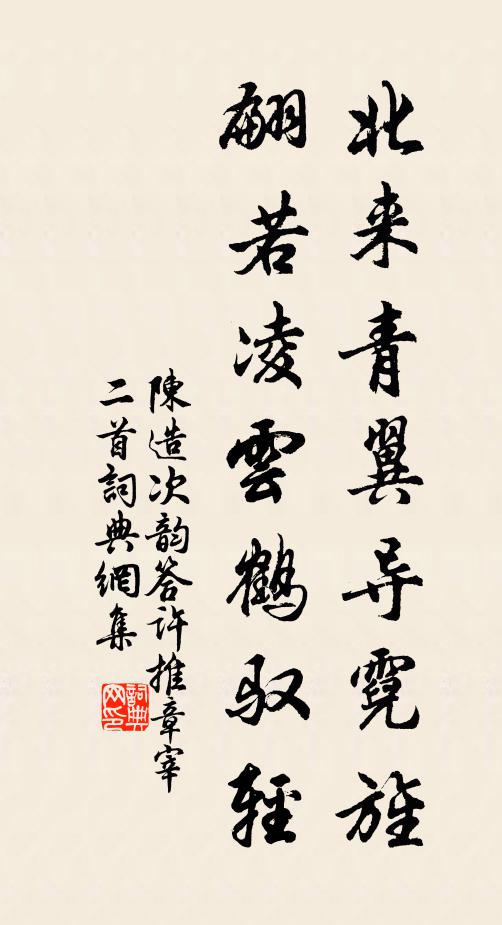 北来青翼导霓旌
翩若凌雲鶴驭輕
陳造次韵答许推章宰
二首詞典網集
詞典網印